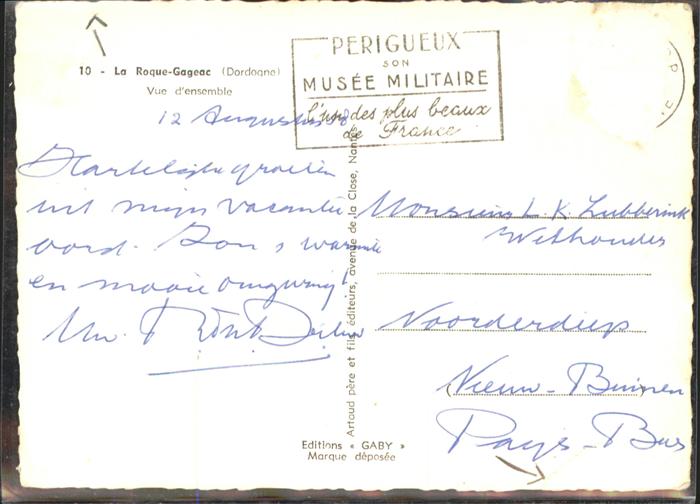 10 - La Roque-Gageac (Dordogne)
Vue d'ensemble
PERIGUEUX
SON
MUSÉE MILITAIRE
l'un des plus beaux
de France
12 Augustus 58
Hartelijke groeten
uit mijn vacantie
oord. Zon, warmte
en mooie omgeving!
Monsieur L. K. Lubberink
Wethouder
Noorderdiep
Nieuw-Buinen
Pays-Bas
Artaud père et fils éditeurs, avenue de la Close, Nantes
Editions « GABY »
Marque déposée